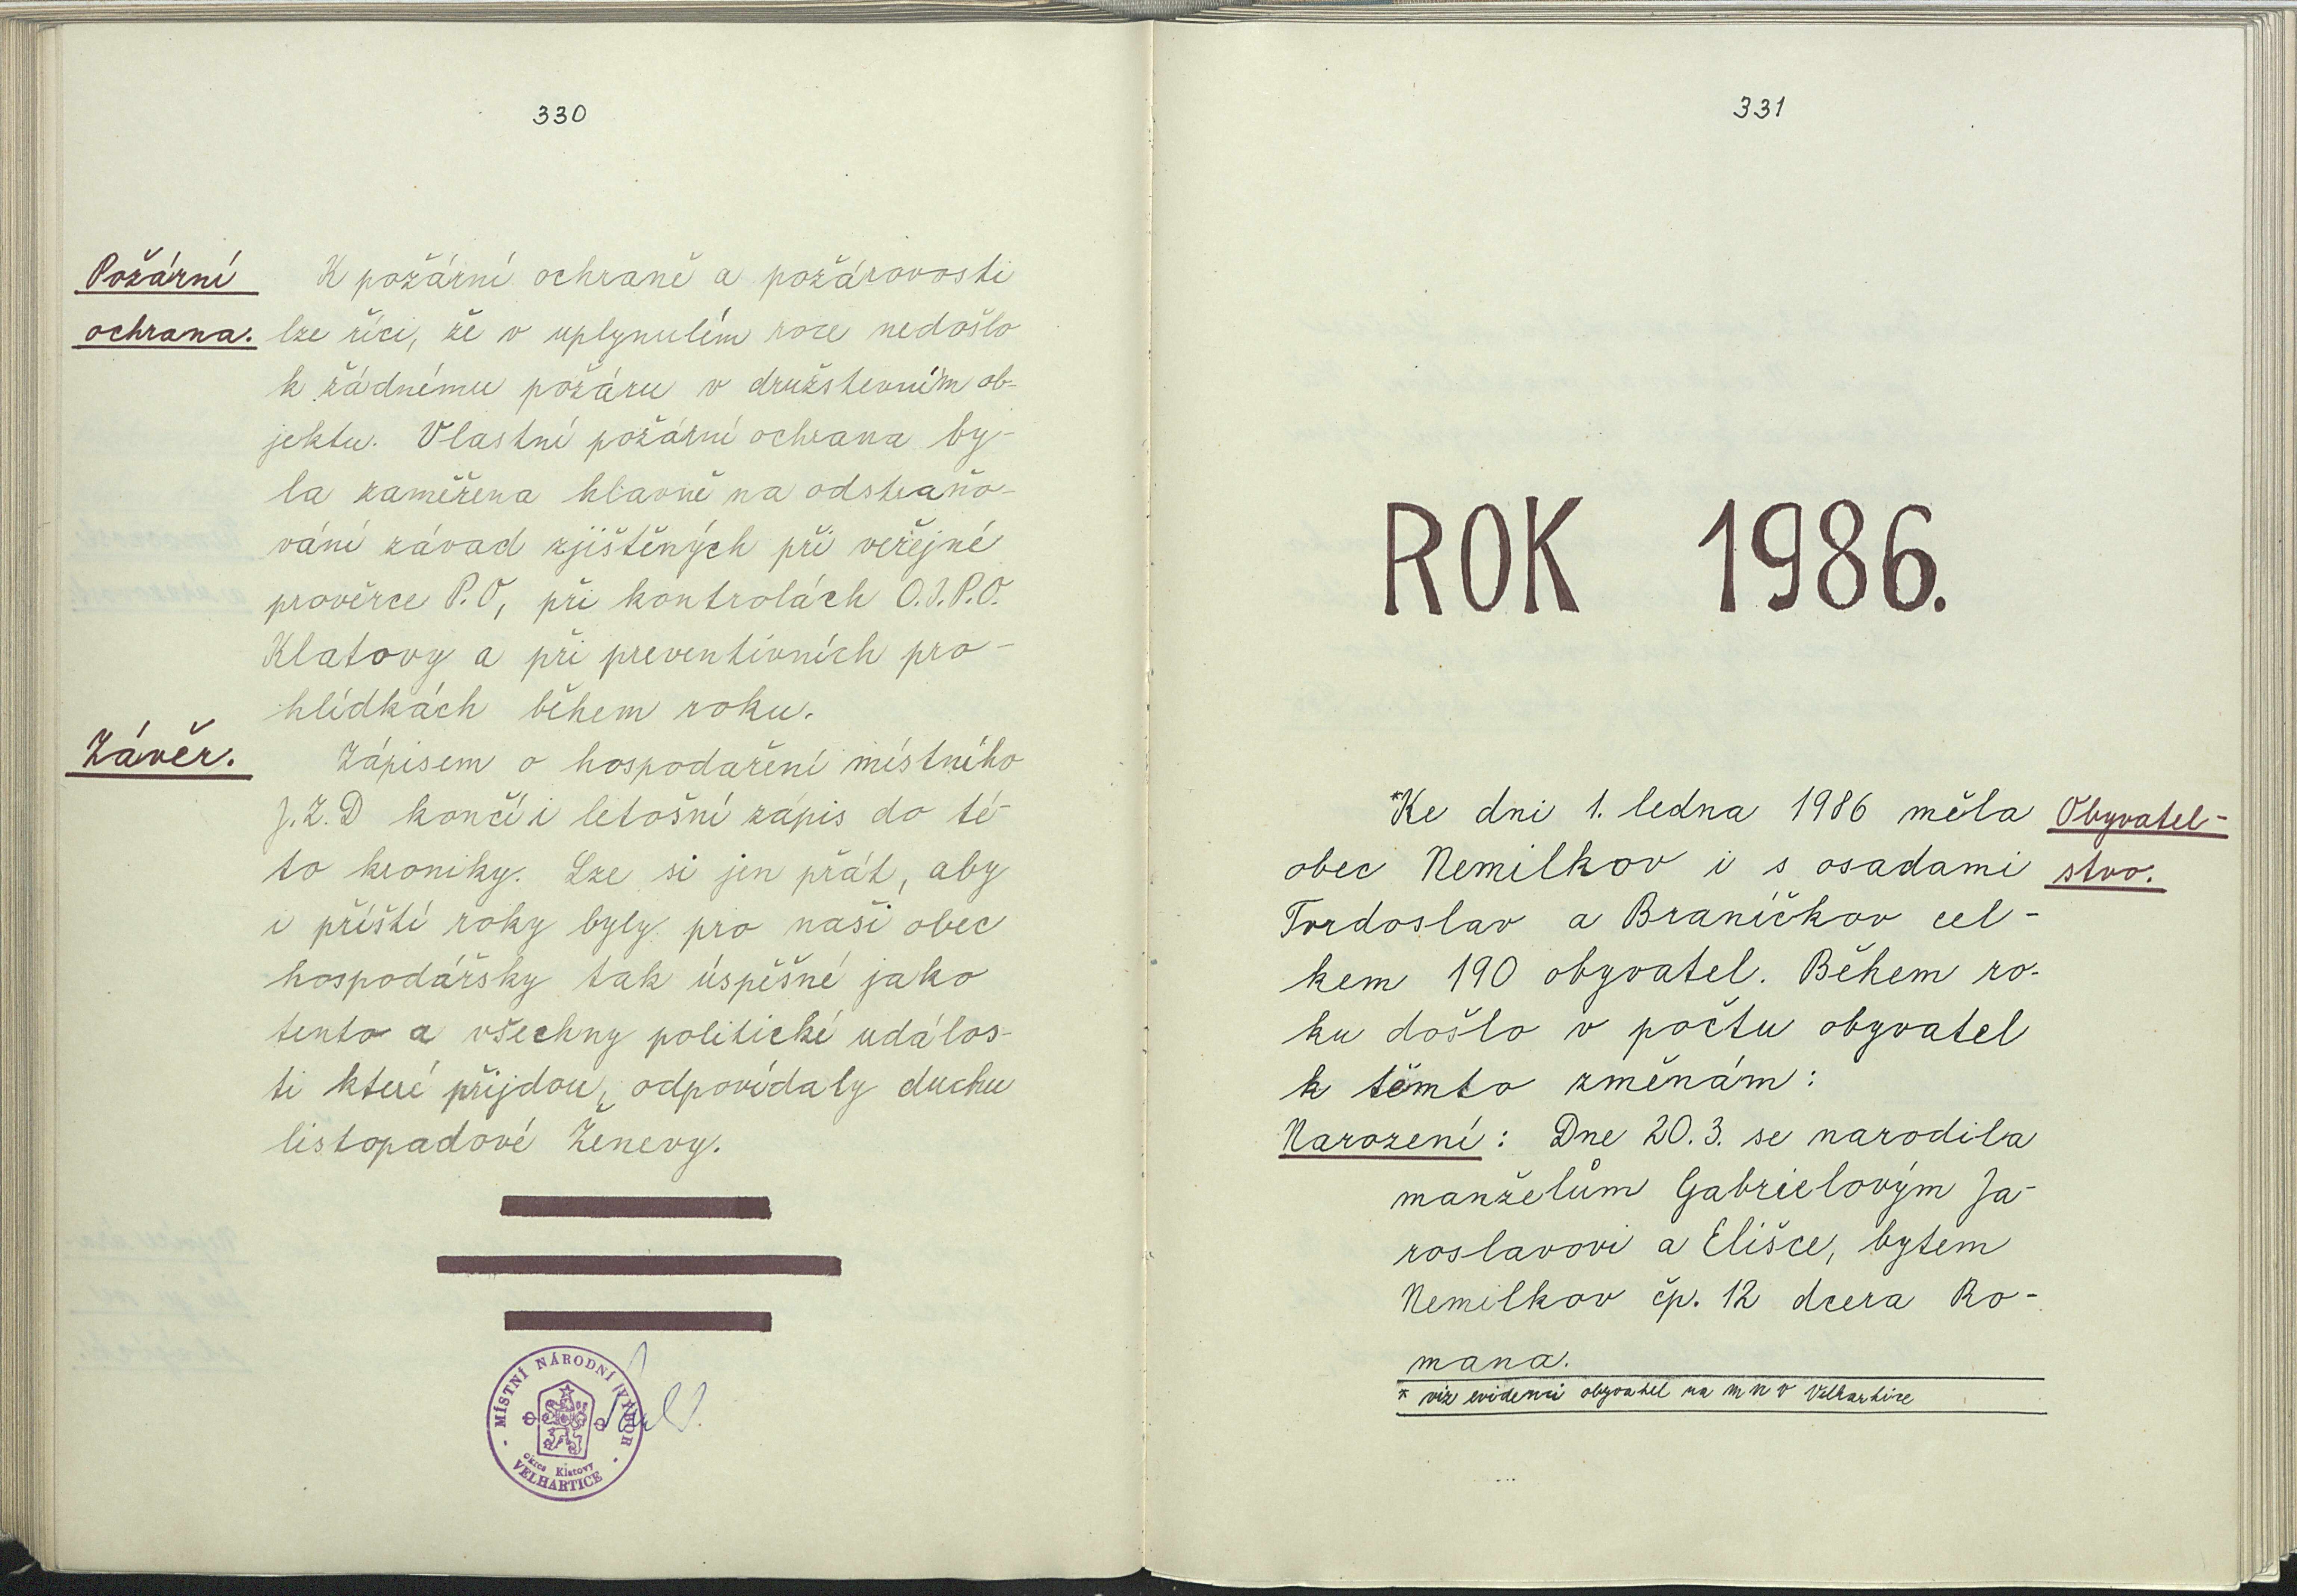 330
Požární
ochrana.
K požární ochraně a požárovosti
lze říci, že v uplynulém roce nedošlo
k žádnému požáru v družstevním ob-
jektu. Vlastní požární ochrana by-
la zaměřena hlavně na odstraňo-
vání závad zjištěných při veřejné
prověrce P.O, při kontrolách O.I.P.O.
Klatovy a při preventivních pro-
hlídkách během roku.
Závěr.
Zápisem o hospodaření místního
J.Z.D končí i letošní zápis do té-
to kroniky. Lze si jen přát, aby
i příští roky byly pro naši obec
hospodářsky tak úspěšné jako
tento a všechny politické událos-
ti které přijdou, odpovídaly duchu
listopadové Ženevy.
MÍSTNÍ NÁRODNÍ VÝBOR
okres Klatovy
VELHARTICE
331
ROK 1986.
*Ke dni 1. ledna 1986 měla
obec Nemilkov i s osadami
Tvrdoslav a Braníčkov cel-
kem 190 obyvatel. Během ro-
ku došlo v počtu obyvatel
k těmto změnám:
Obyvatel-
stvo.
Narození: Dne 20.3. se narodila
manželům Gabrielovým Ja-
roslavovi a Elišce, bytem
Nemilkov čp. 12 dcera Ro-
mana.
* viz evidenci obyvatel na m n v Velhartice